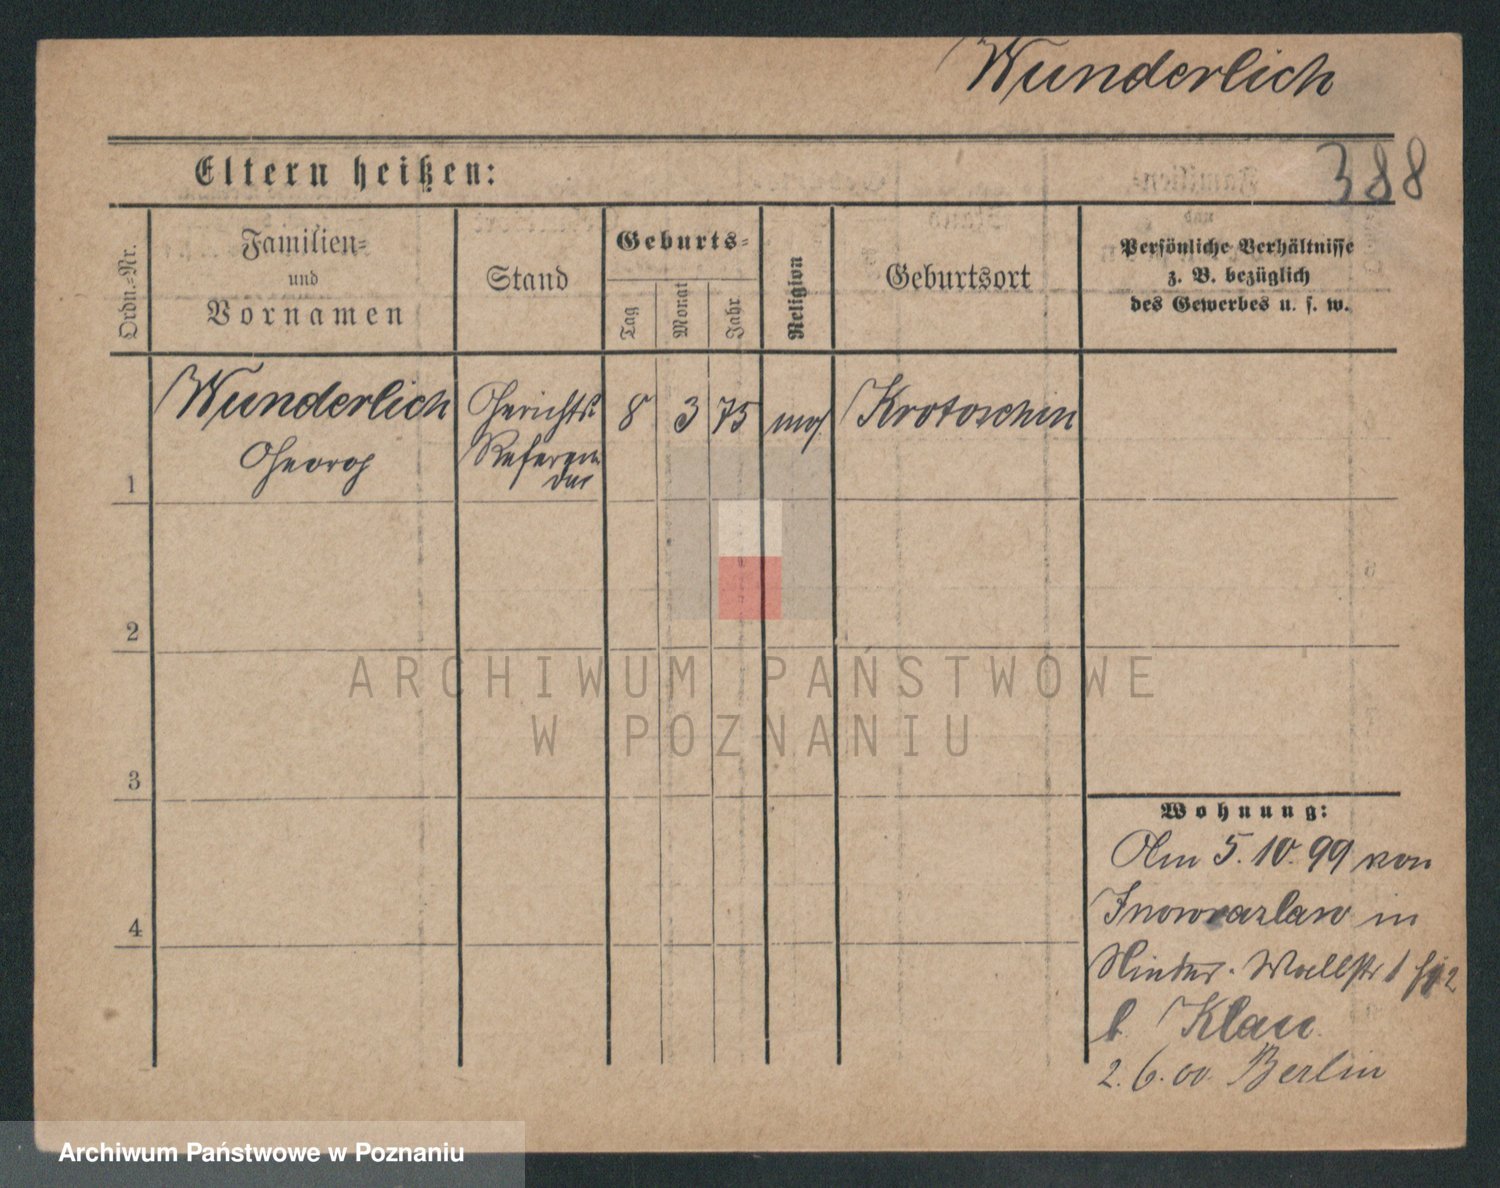 Wunderlich
388
Eltern heißen:
Ordn.-Nr.
Familien-
und
Vornamen
Stand
Geburts-
Tag
Monat
Jahr
Religion
Geburtsort
Persönliche Verhältnisse
z. B. bezüglich
des Gewerbes u. s. w.
1
Wunderlich
Georg
Gerichts
Referen
dar
8
3
75
mos
Krotoschin
2
3
4
ARCHIWUM PAŃSTWOWE
W POZNANIU
Wohnung:
Am 5.10.99 von
Inowrazlaw in
Hinter. Wallstr 1
b. Klau
2.6.00 Berlin
Archiwum Państwowe w Poznaniu